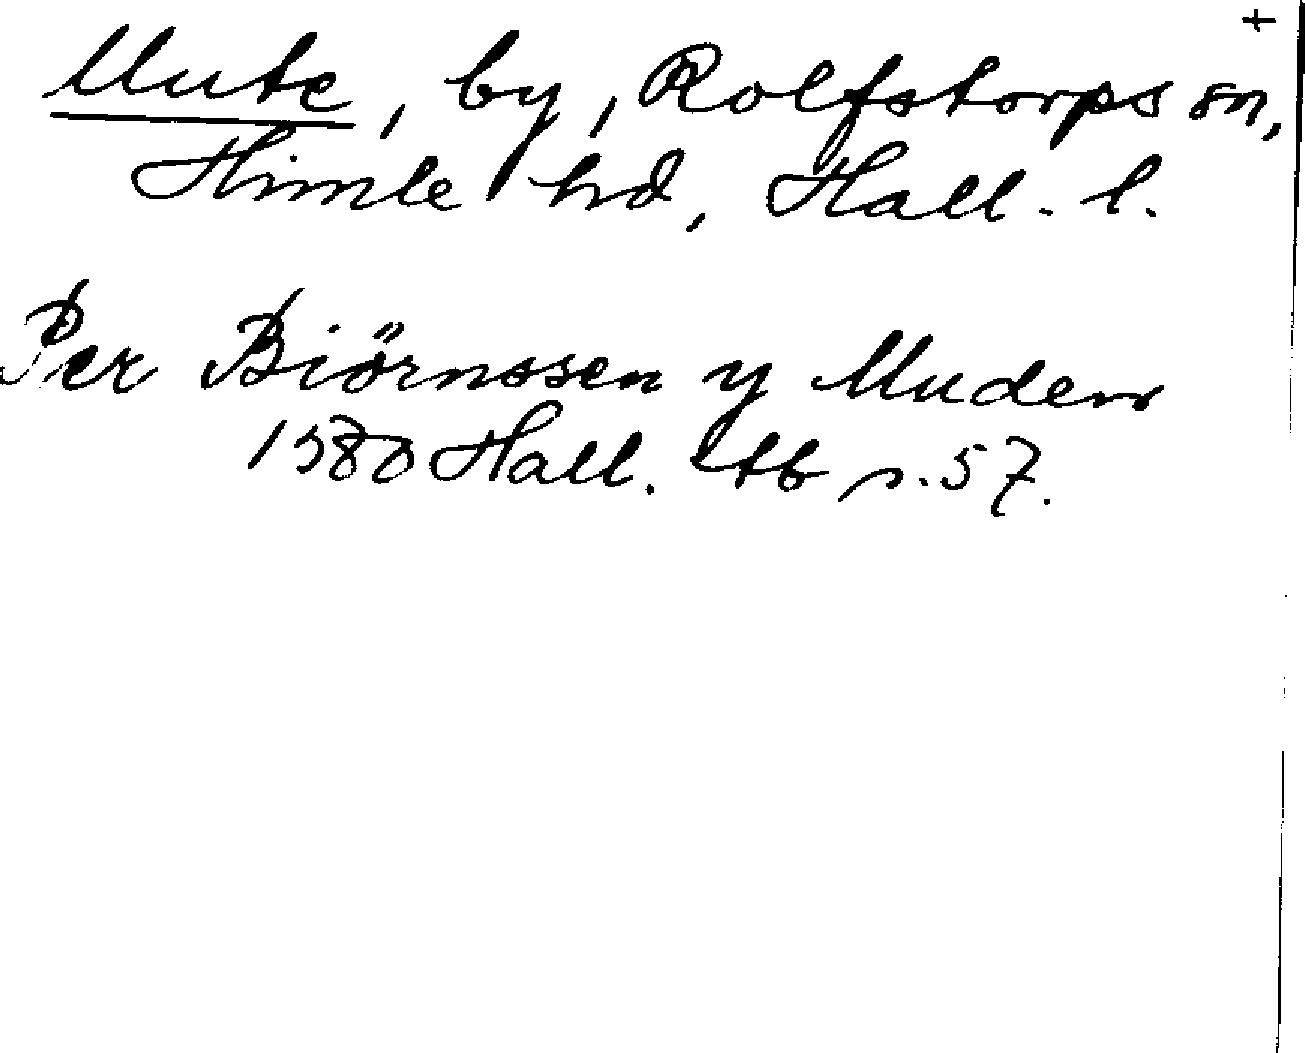 +
Mute, by, Rolfstorps sn,
Himle hd, Hall. l.
Per Biörnssen y Muden
1580 Hall. ltb s. 57.